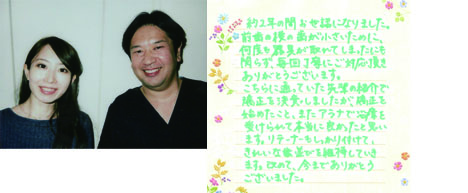 約2年の間お世話になりました。
前歯の横の歯が小さいために、
何度も器具が取れてしまったにも
関らず、毎回丁寧にご対応頂き
ありがとうございます。
こちらに通っていた先輩の紹介で
矯正を決失しましたが、矯正を
始めたこと、またアラナで治療を
受けられて本当に良かったと思い
ます。リテーナーもしっかり付けて、
きれいな歯並びを維持していき
ます。改めて、今までありがとう
ございました。